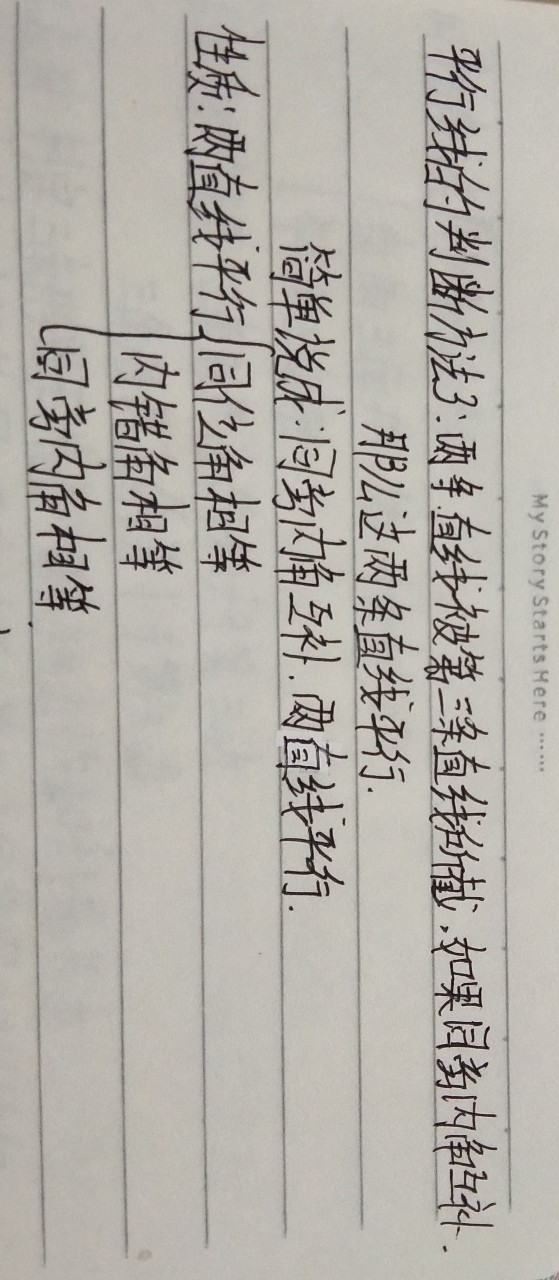 My Story Starts Here ......
平行线的判断方法3:两条直线被第三条直线所截,如果同旁内角互补.
那么这两条直线平行.
简单说成:同旁内角互补.两直线平行.
性质:两直线平行{同位角相等
内错角相等
同旁内角相等